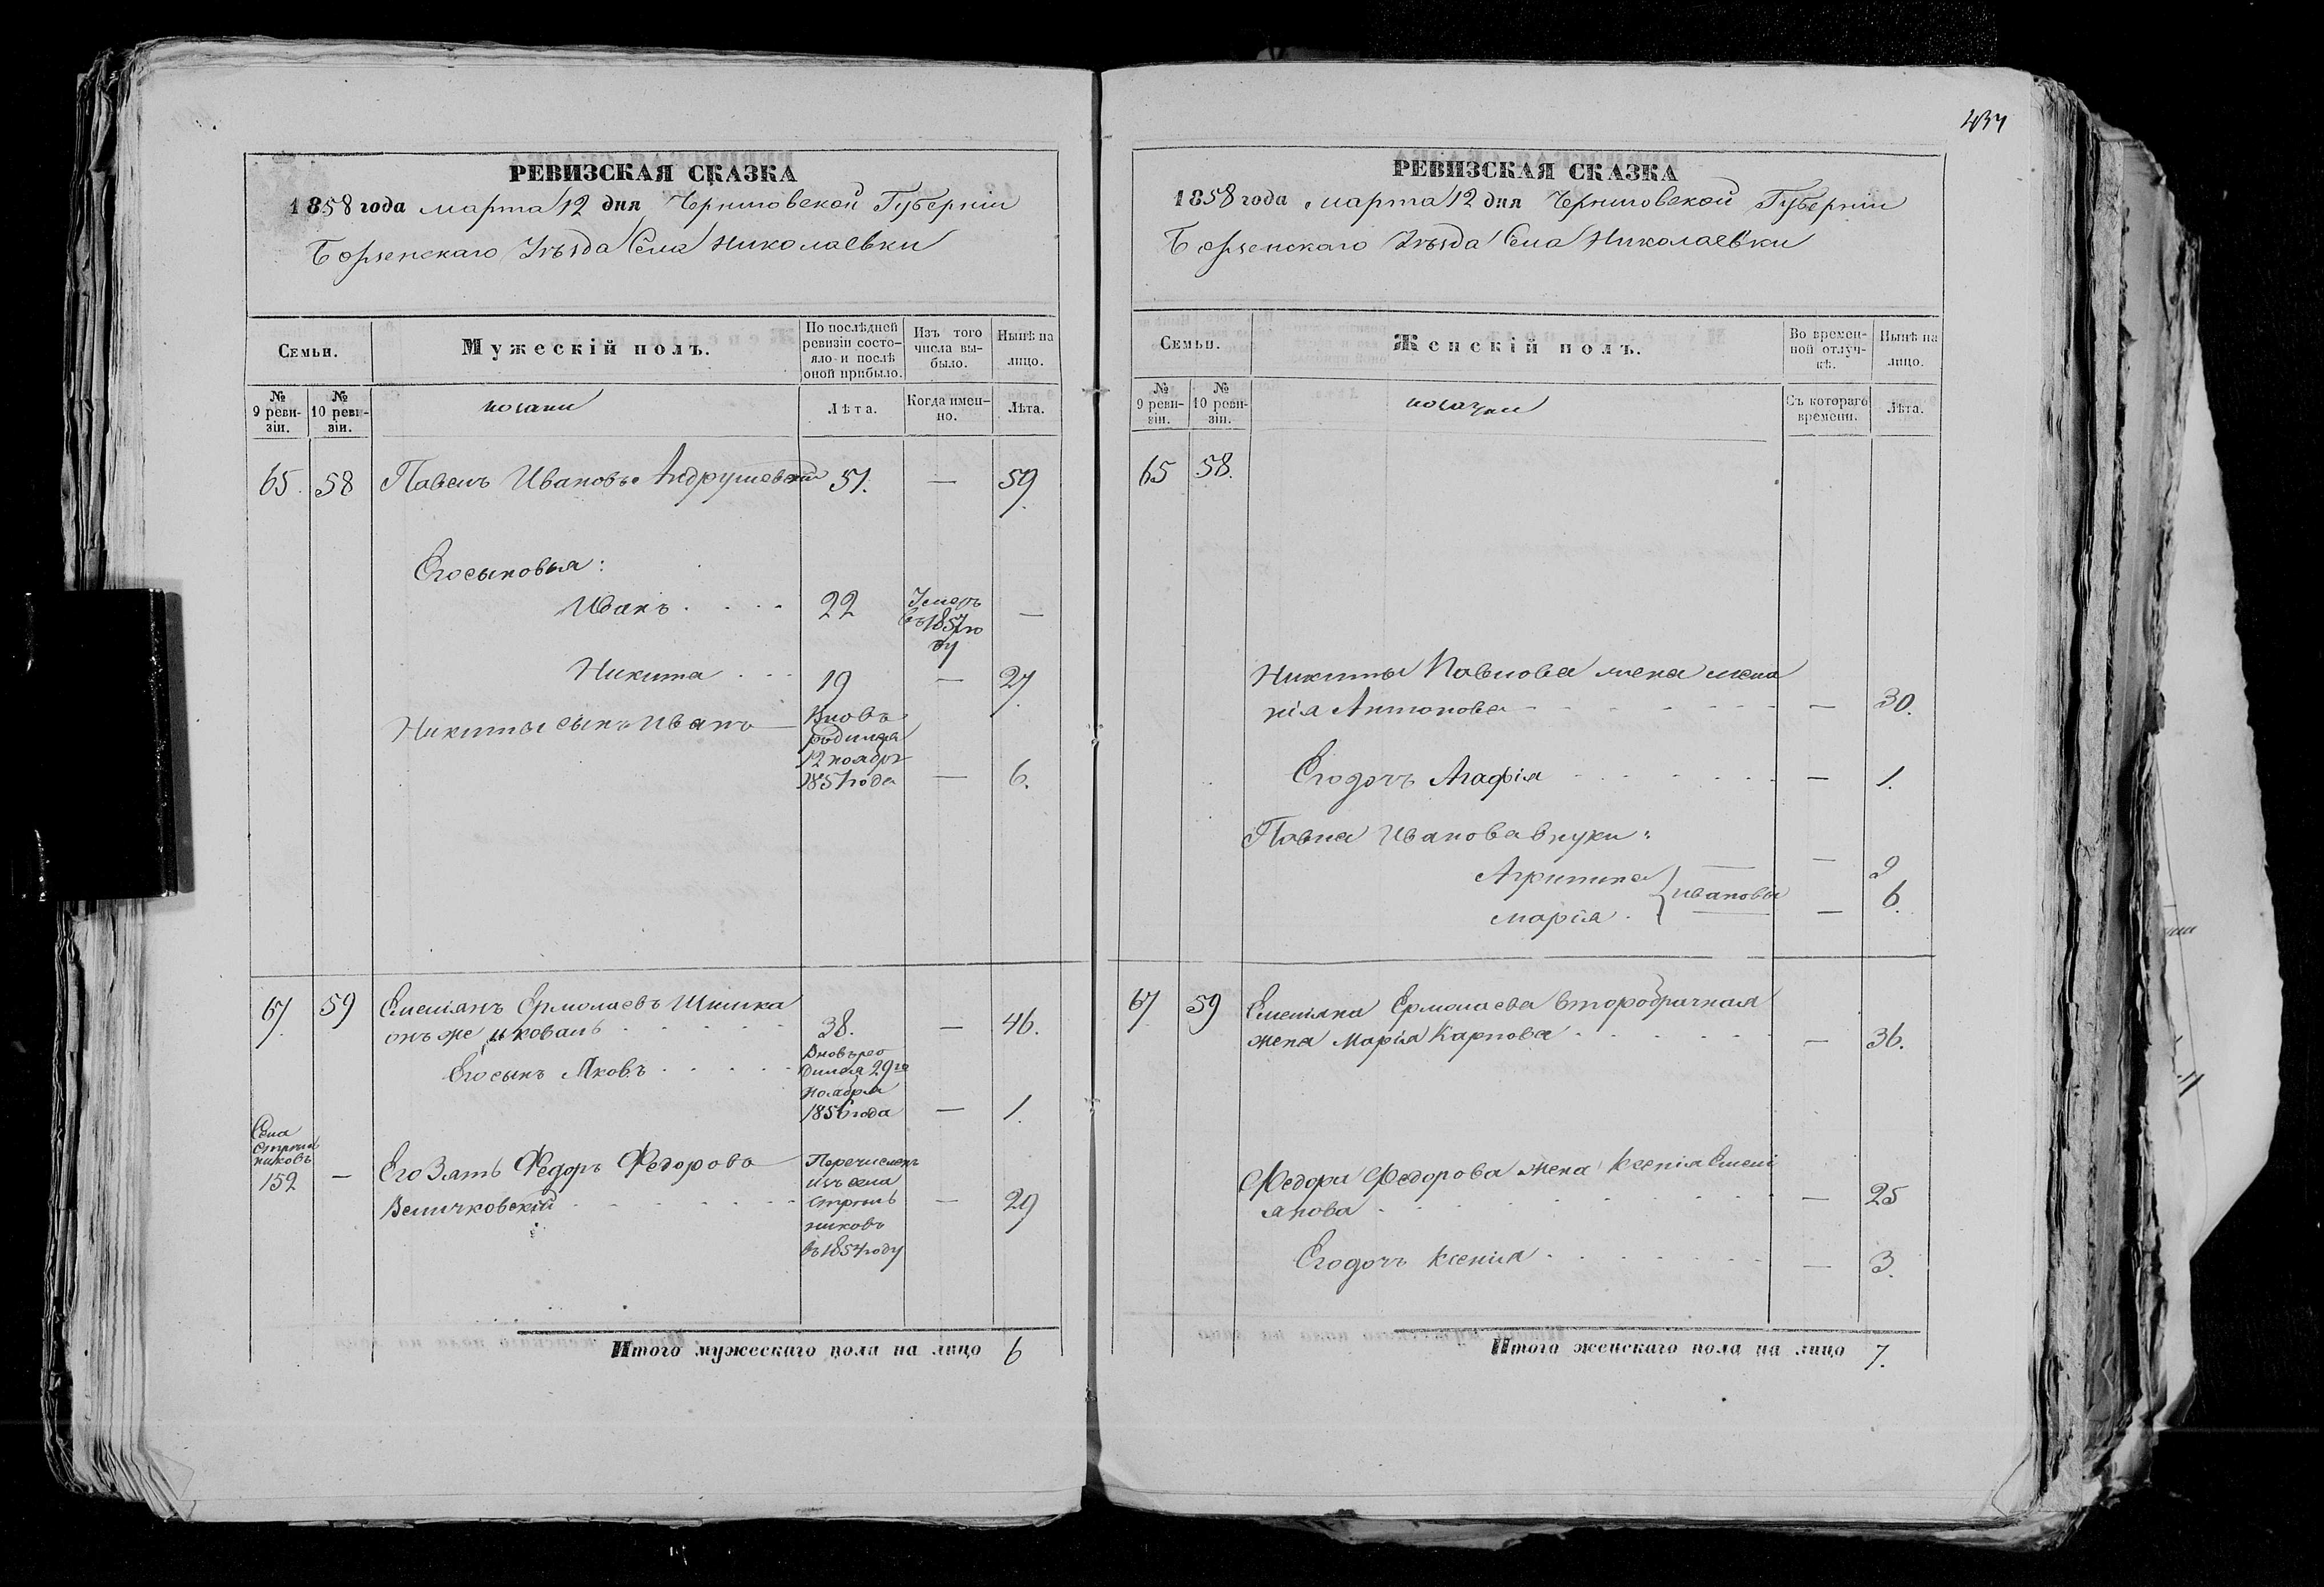 434
РЕВИЗСКАЯ СКАЗКА
1858 года марта 12 дня Черниговской Губерніи
Борзенскаго Уѣзда Села Николаевки
Семьи.
Мужескій полъ.
По послѣдней ревизіи состояло и послѣ оной прибыло.
Изъ того числа выбыло.
Нынѣ на лицо.
№ 9 ревизіи.
№ 10 ревизіи.
козаки
Лѣта.
Когда именно.
Лѣта.
65. 58 Павелъ Ивановъ Андрушевскій 51. — 59.
Его сыновья:
Иванъ 22 Умеръ въ 1857 году —
Никита 19 — 27.
Никиты сынъ Иванъ Вновь родился 12 ноябр 1851 года — 6.
67. 59 Емеліянъ Ермолаевъ Шишка
онъ же и коваль 38. — 46.
Его сынъ Яковъ Вновь родился 29го Ноября 1856 года — 1.
Села Стрельниковъ 152 — Его Зять Федоръ Федоровъ
Величковскій Перечисленъ изъ села Стрельниковъ въ 1854 году — 29
Итого мужескаго пола на лицо 6
РЕВИЗСКАЯ СКАЗКА
1858 года марта 12 дня Черниговской Губерніи
Борзенскаго Уѣзда Села Николаевки
Семьи.
Женскій полъ.
Во временной отлучкѣ.
Нынѣ на лицо.
№ 9 ревизіи.
№ 10 ревизіи.
козачки
Съ котораго времени.
Лѣта.
65 58.
Никиты Павлова жена Мела
нія Антонова — 30.
Его дочь Агафія — 1.
Павла Иванова внуки:
Агрипина — 9
Ивановы
Марія — 6.
67. 59 Емеліяна Ермолаева второбрачная
жена Марія Карпова — 36.
Федора Федорова жена Ксенія Емелі
янова — 25
Его дочь Ксенія — 3.
Итого женскаго пола на лицо 7.